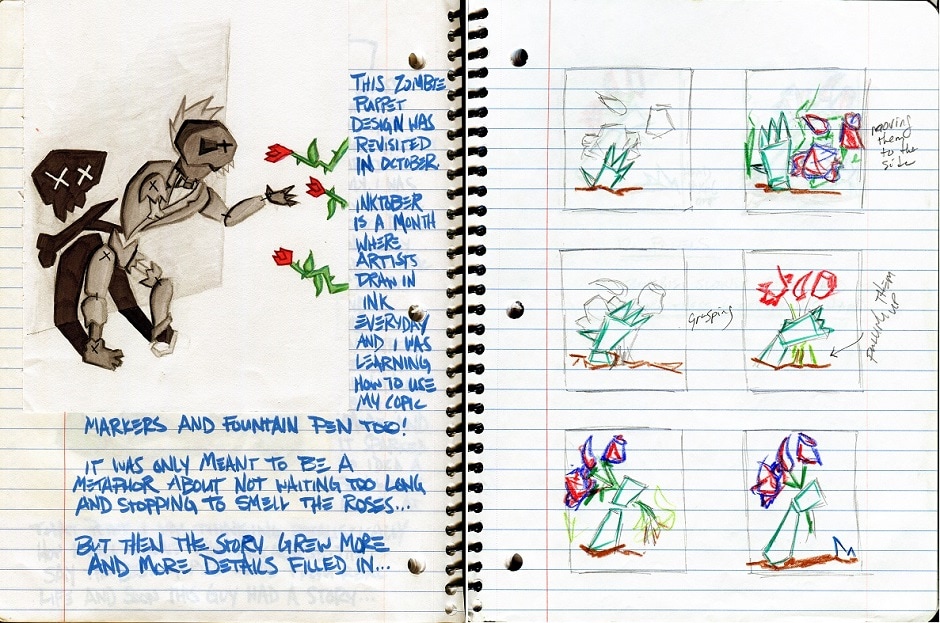 THIS ZOMBIE
PUPPET
DESIGN WAS
REVISITED
IN OCTOBER.
INKTOBER
IS A MONTH
WHERE
ARTISTS
DRAW IN
INK
EVERYDAY
AND I WAS
LEARNING
HOW TO USE
MY COPIC
MARKERS AND FOUNTAIN PEN TOO!
IT WAS ONLY MEANT TO BE A
METAPHOR ABOUT NOT WAITING TOO LONG
AND STOPPING TO SMELL THE ROSES...
BUT THEN THE STORY GREW MORE
AND MORE DETAILS FILLED IN...
moving
them
to the
side
Grasping
PULLING THEM
UP